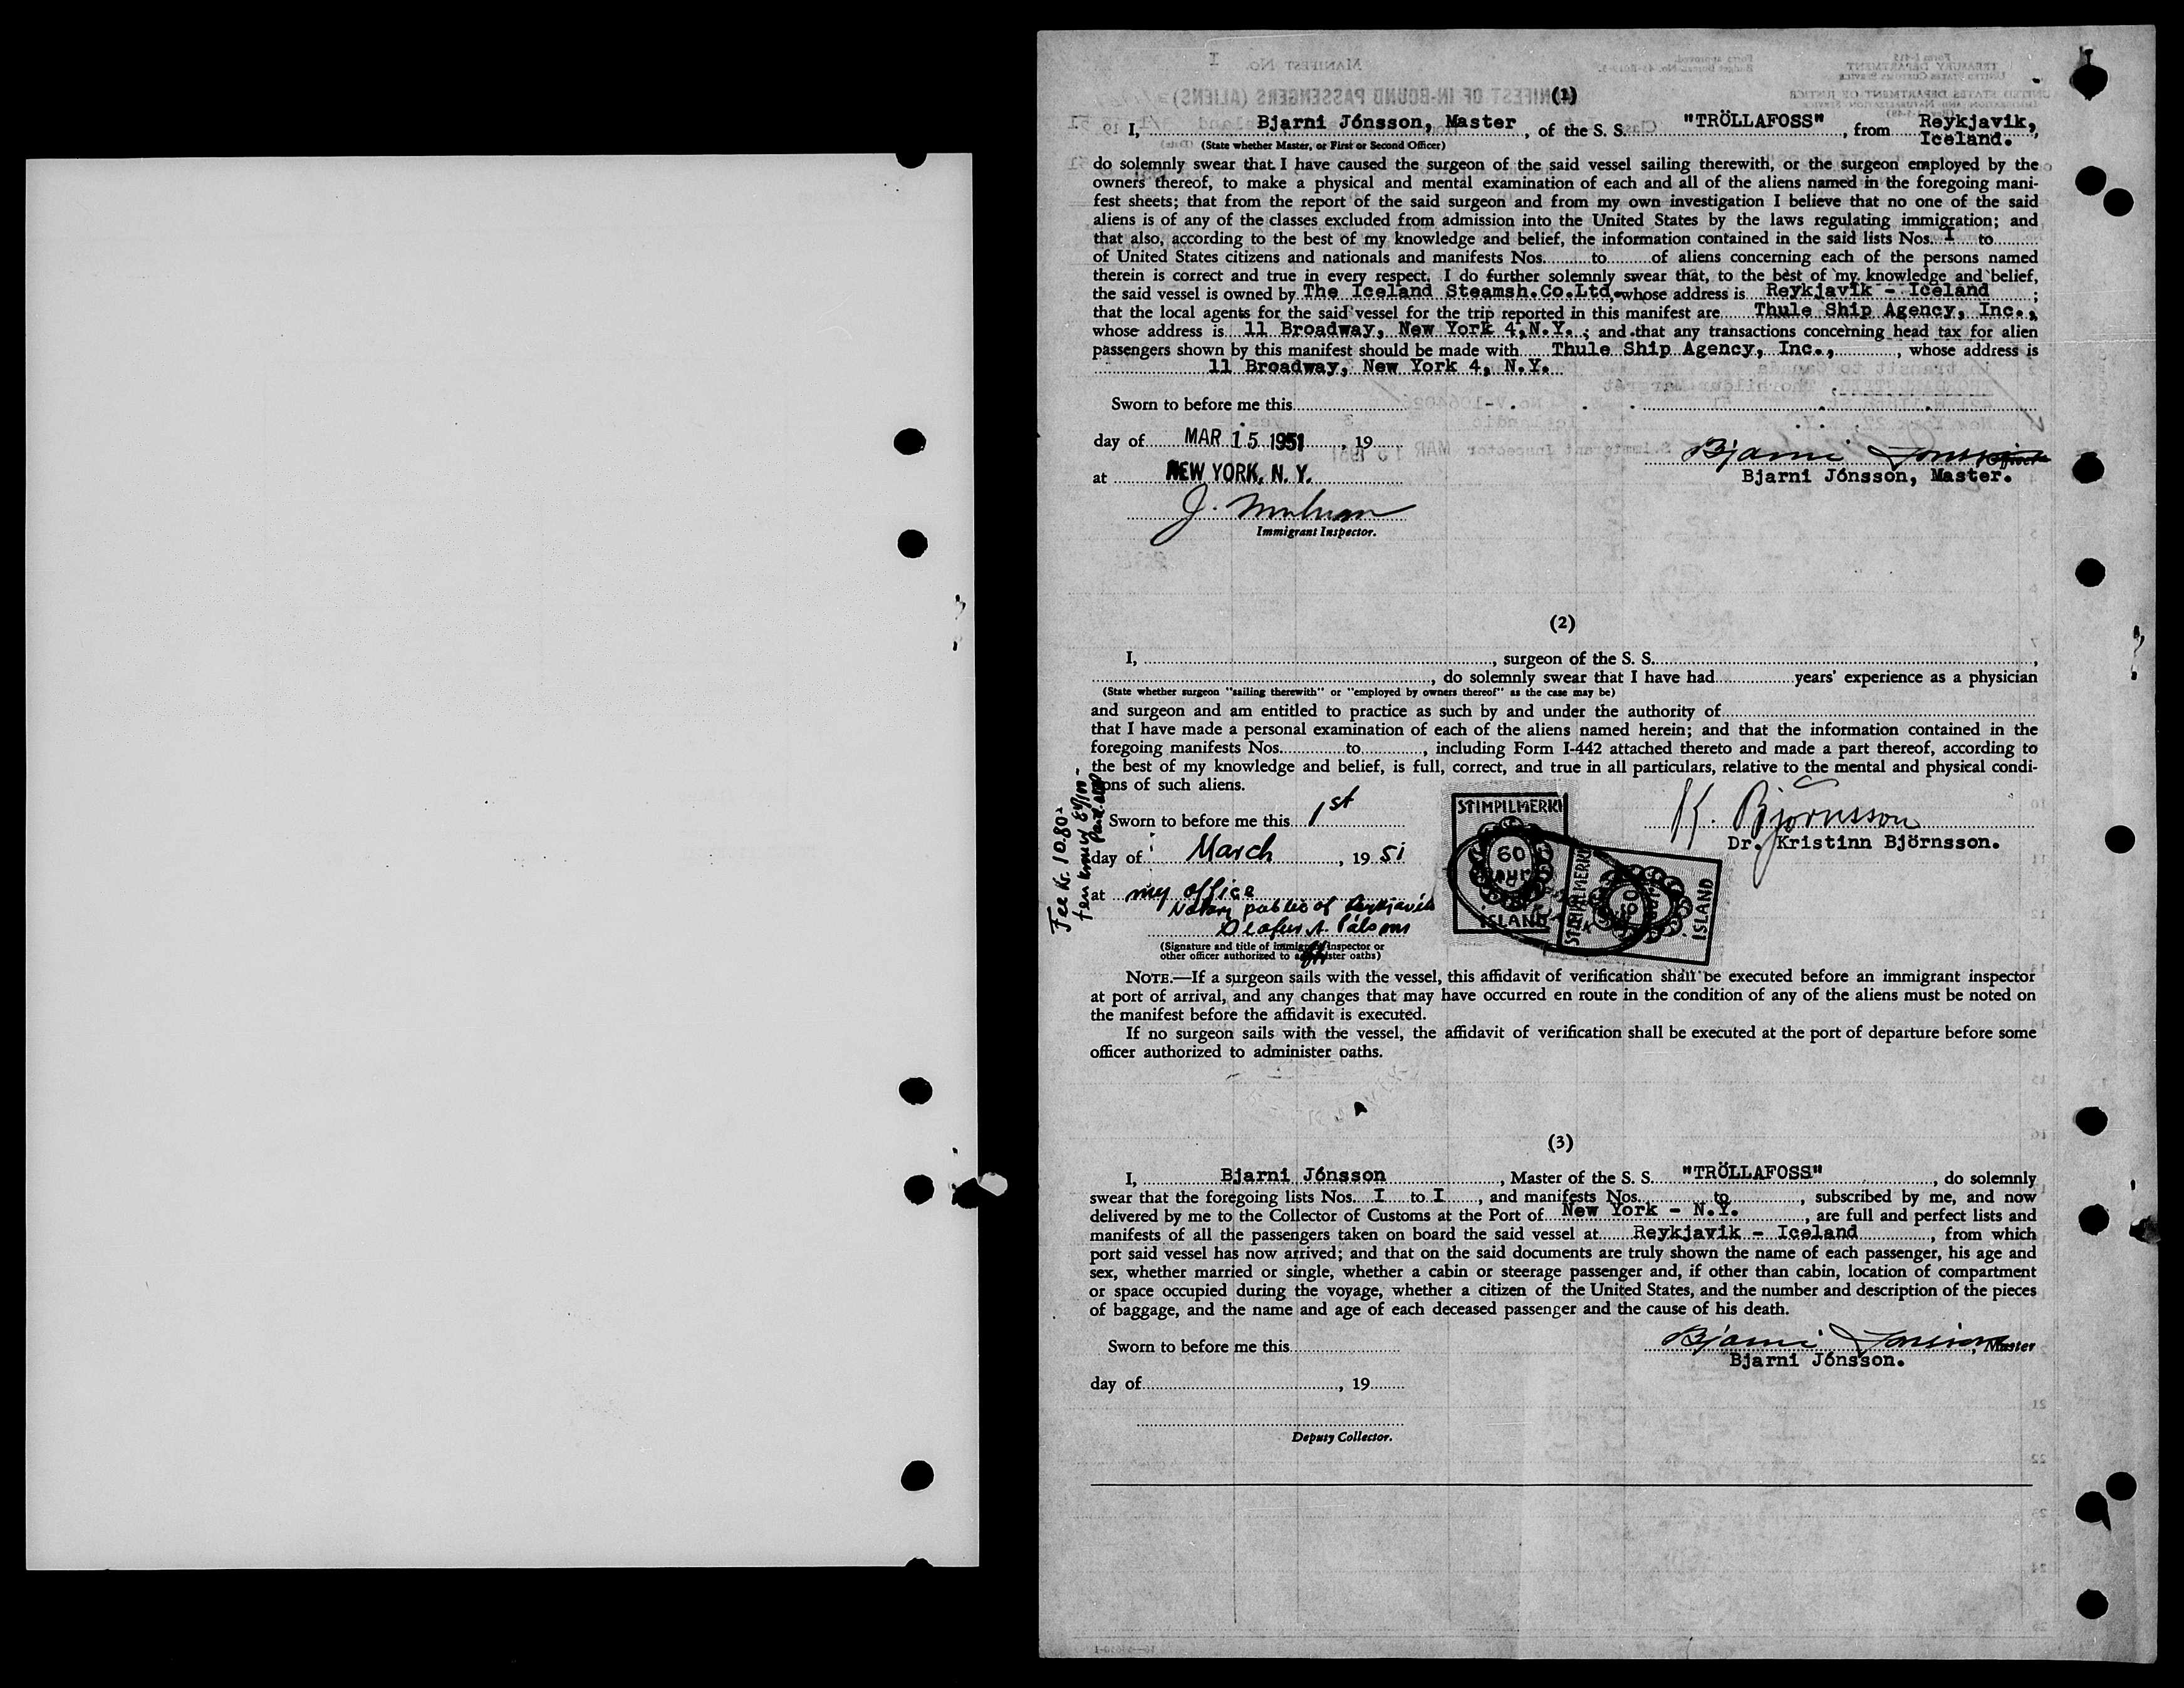 (1)
I, Bjarni Jónsson, Master, of the S. S. "TRÖLLAFOSS", from Reykjavik, Iceland.,
(State whether Master, or First or Second Officer)
do solemnly swear that I have caused the surgeon of the said vessel sailing therewith, or the surgeon employed by the
owners thereof, to make a physical and mental examination of each and all of the aliens named in the foregoing mani-
fest sheets; that from the report of the said surgeon and from my own investigation I believe that no one of the said
aliens is of any of the classes excluded from admission into the United States by the laws regulating immigration; and
that also, according to the best of my knowledge and belief, the information contained in the said lists Nos. I to
of United States citizens and nationals and manifests Nos. to of aliens concerning each of the persons named
therein is correct and true in every respect. I do further solemnly swear that, to the best of my knowledge and belief,
the said vessel is owned by The Iceland Steamsh.Co.Ltd, whose address is Reykjavik - Iceland ;
that the local agents for the said vessel for the trip reported in this manifest are Thule Ship Agency, Inc.,
whose address is 11 Broadway, New York 4,N.Y. ; and that any transactions concerning head tax for alien
passengers shown by this manifest should be made with Thule Ship Agency, Inc., , whose address is
11 Broadway, New York 4, N.Y.
Sworn to before me this
day of MAR 15 1951, 19
at NEW YORK, N. Y.
Bjarni Jónsson
Officer
Bjarni Jónsson, Master.
Immigrant Inspector.
(2)
I, , surgeon of the S. S. ,
, do solemnly swear that I have had years' experience as a physician
(State whether surgeon "sailing therewith" or "employed by owners thereof" as the case may be)
and surgeon and am entitled to practice as such by and under the authority of
that I have made a personal examination of each of the aliens named herein; and that the information contained in the
foregoing manifests Nos. to , including Form I-442 attached thereto and made a part thereof, according to
the best of my knowledge and belief, is full, correct, and true in all particulars, relative to the mental and physical condi-
tions of such aliens.
Sworn to before me this 1st
day of March, 19 51
at my office
Notary public of Reykjavik
(Signature and title of immigrant inspector or
other officer authorized to administer oaths)
Fee Kr. 10.80
STIMPILMERKI
60
ISLAND
STIMPILMERKI
10
ISLAND
K. Björnsson
Dr. Kristinn Björnsson.
NOTE.—If a surgeon sails with the vessel, this affidavit of verification shall be executed before an immigrant inspector
at port of arrival, and any changes that may have occurred en route in the condition of any of the aliens must be noted on
the manifest before the affidavit is executed.
If no surgeon sails with the vessel, the affidavit of verification shall be executed at the port of departure before some
officer authorized to administer oaths.
(3)
I, Bjarni Jónsson, Master of the S. S. "TRÖLLAFOSS", do solemnly
swear that the foregoing lists Nos. I to I, and manifests Nos. to , subscribed by me, and now
delivered by me to the Collector of Customs at the Port of New York - N.Y., are full and perfect lists and
manifests of all the passengers taken on board the said vessel at Reykjavik - Iceland, from which
port said vessel has now arrived; and that on the said documents are truly shown the name of each passenger, his age and
sex, whether married or single, whether a cabin or steerage passenger and, if other than cabin, location of compartment
or space occupied during the voyage, whether a citizen of the United States, and the number and description of the pieces
of baggage, and the name and age of each deceased passenger and the cause of his death.
Sworn to before me this
Bjarni Jónsson, Master
Bjarni Jónsson.
day of , 19
Deputy Collector.